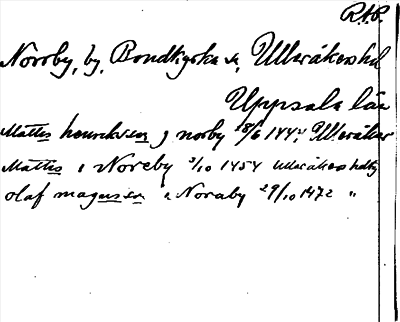 R.A.P.
Norrby, by, Bondkyrka sn, Ulleråkers hd
Uppsala län
Mattes henrikson j norby 18/6 1444 Ulleråker
Mattes i Noreby 3/10 1454 Ulleråkers hdtg
olaf magnusson i Noraby 29/10 1472 "